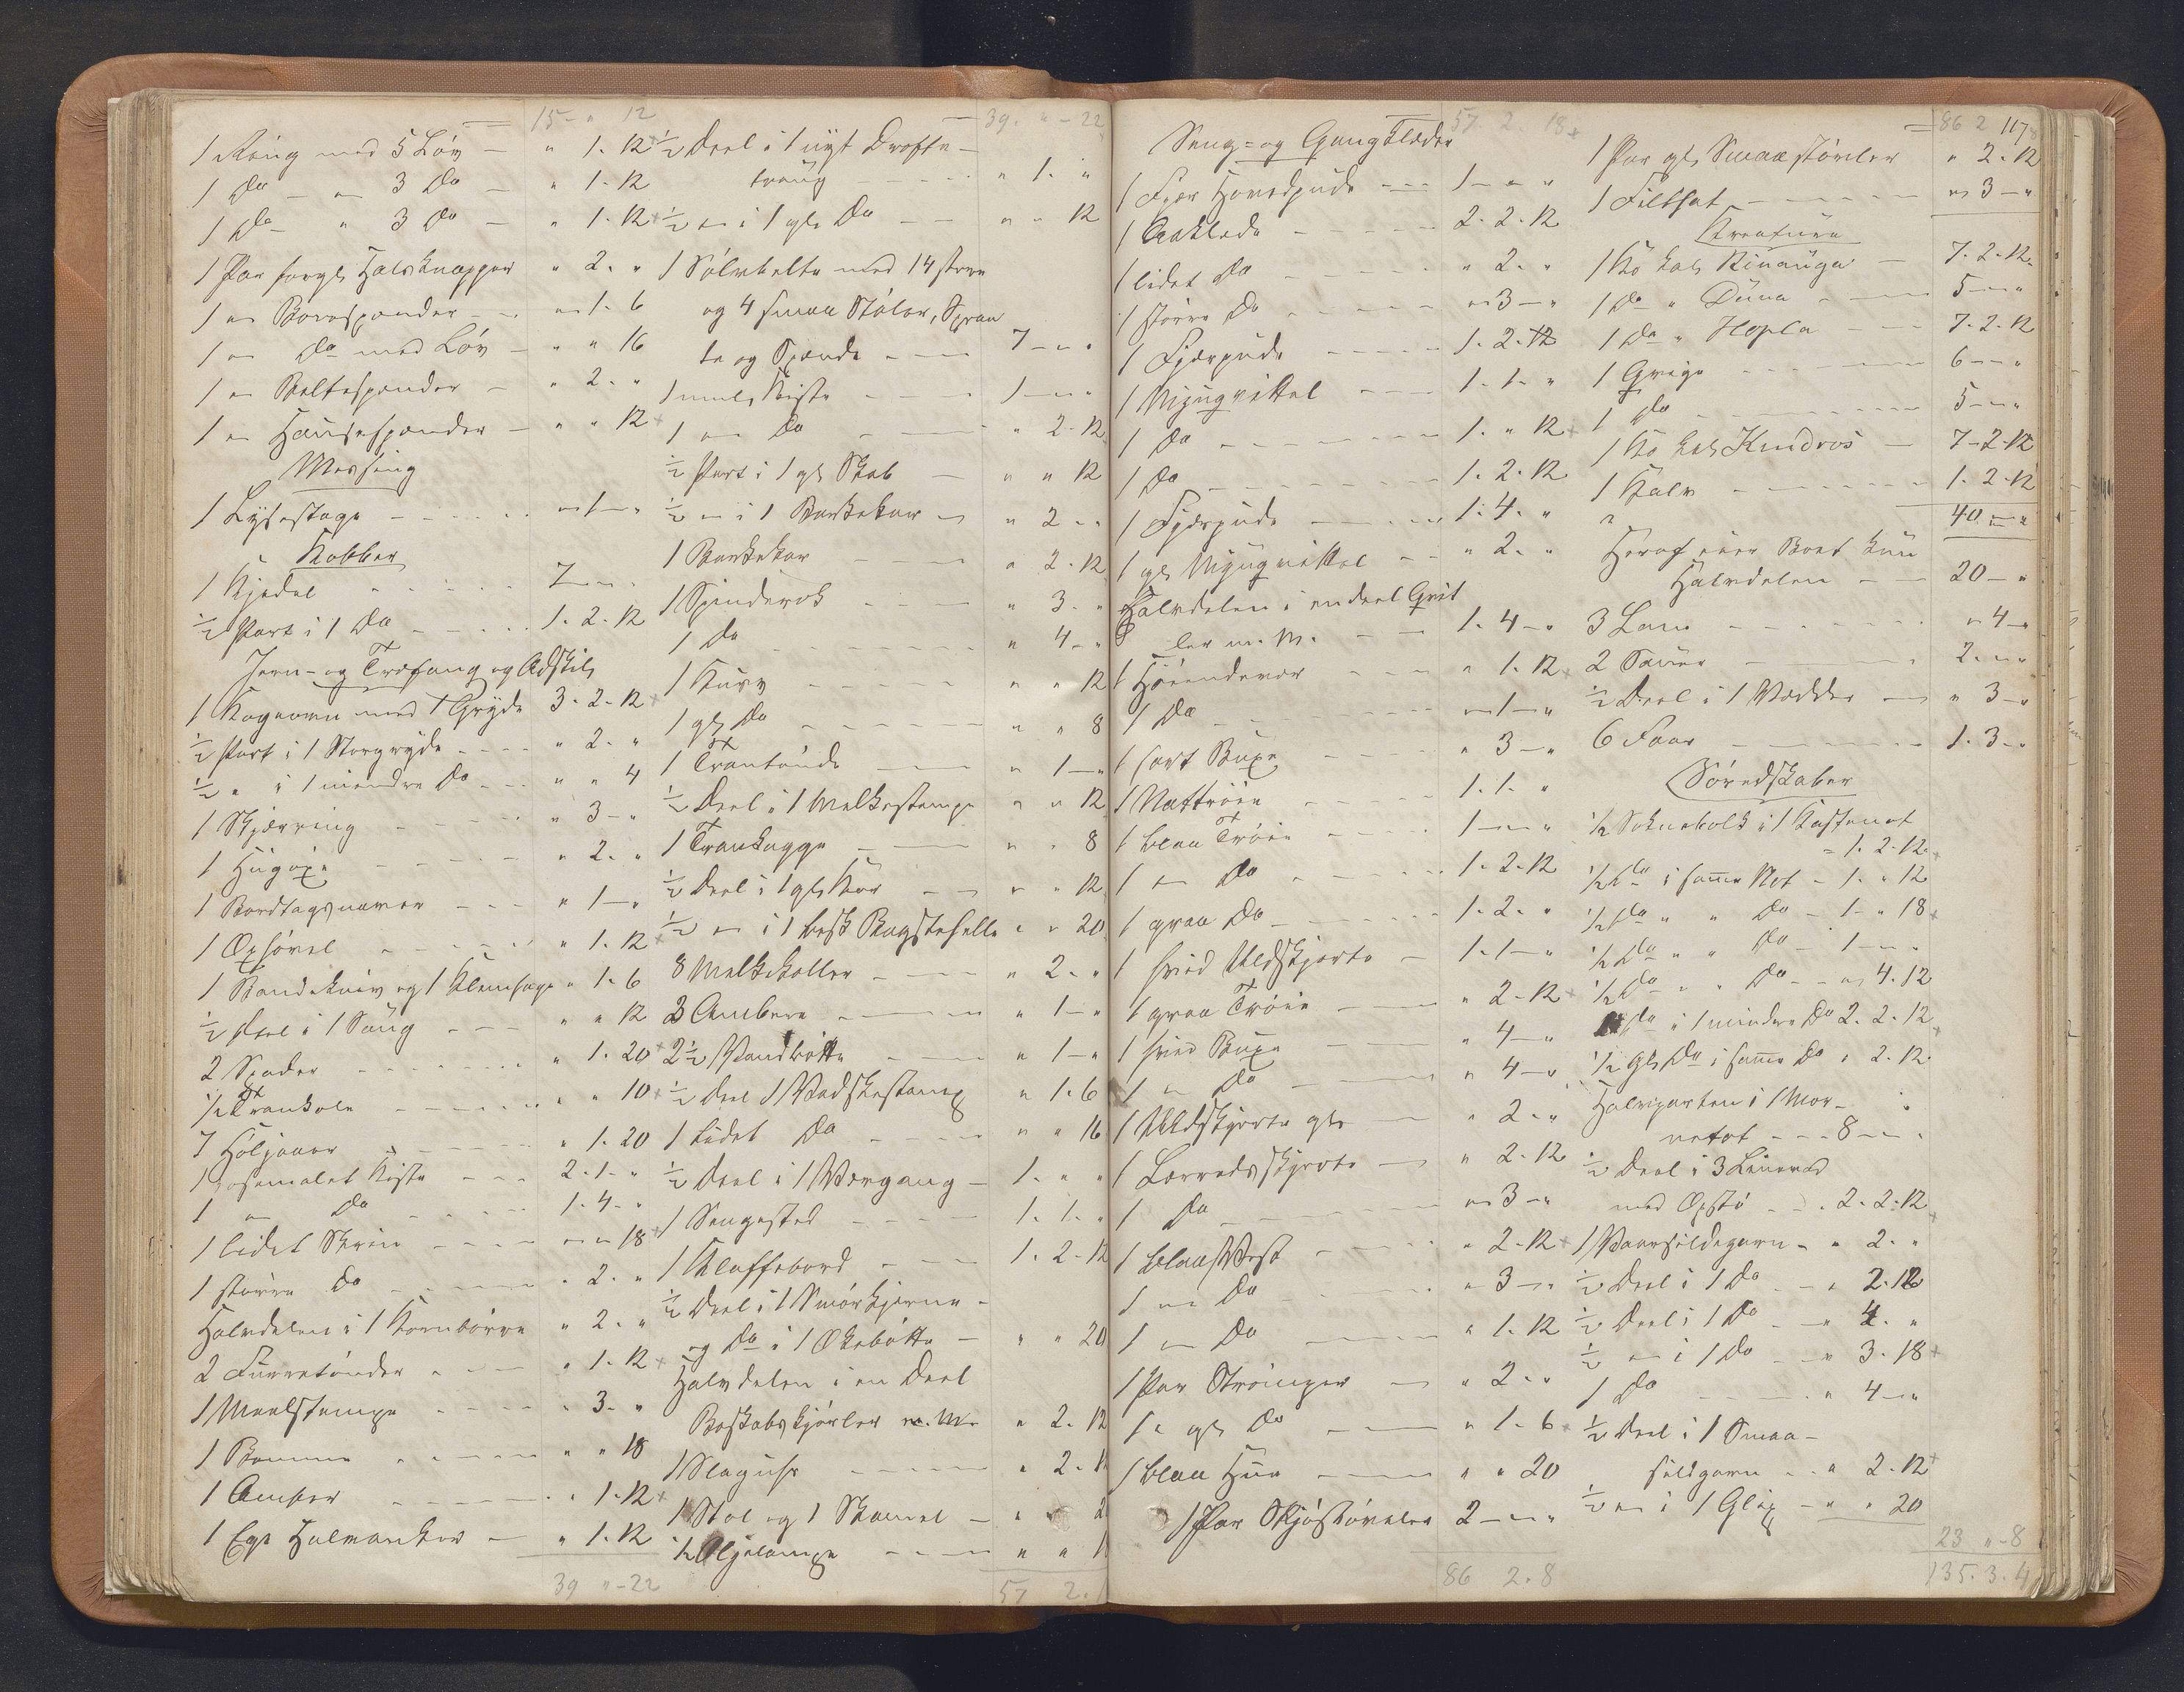 15 - " 12
1 Ring med 5 Løv — " 1. 12
1 Do — " 3 Do — " 1. 12
1 Do " 3 Do — " 1. 12
1 Par forgl. Halsknapper " 2. "
1 " Borespender - - " 1. 6
1 " Do med Løv — " " 16
1 " Beltespender — " 2. "
1 " Hausespender — " " 12
Messing
1 Lysestage - - - - " 1 — "
Kobber
1 Kjedel - - - - 7 — "
½ Part i 1 Do - - - - 1. 2. 12
Jern- og Træfang og Adskil.
1 Kogeovn med 1 Gryde 3. 2. 12
½ Part i 1 Storgryde - - - " 2. "
½ " i 1 mindre Do - - - " " 4
1 Skjæring - - - - " 3 — "
1 Hugøxe - - - - " 2. "
1 Bordtagsnaver - - - " 1 — "
1 Øxhøvel - - - - " 1. 12
1 Bandekniv og 1 Klemsage " 1. 6
½ Deel i 1 Saug - - - " " 12
2 Spader - - - - " 1. 20
½ Trankole - - - - " " 10
7 Høljaaer - - - - " 1. 20
1 rosemalet Kiste - - - 2. 1. "
1 " Do - - - - 1. 4. "
1 lidet Skrin - - - - " " 18
1 større Do - - - - " 2. "
Halvdelen i 1 Kornbørre " 2. "
2 Furretønder - - - " 1. 12
1 Meelstampe - - - - " 3. "
1 Bomme - - - - " " 18
1 Amber - - - - " 1. 12
1 Ege Halvanker — " 1. 12
39 " - 22
39. " - 22
½ Deel i 1 nyt Drofte-
traug - - - - " 1. "
½ " i 1 gl. Do — " " 12
1 Sølvbelte med 14 store
og 4 smaa Støler, Spraa
te og Spænde - - - 7 — "
1 mal. Kiste - - - - 1 — "
1 " Do - - - - " 2. 12
½ Part i 1 gl. Skab — " " 12
½ " i 1 Barkekar — " 2 — "
1 Barkekar - - - " 2. 12
1 Spinderok - - - " 3. "
1 Do - - - - " 4 — "
1 Kurv - - - - " " 12
1 gl. Do - - - - " " 8
1 Trantønde - - - " 1 — "
½ Deel i 1 Melkestampe " " 12
1 Trankagge - - - " " 8
½ Deel i 1 gl. Kar - - " " 12
½ " i 1 besk Bagstehelle " " 20
8 Melkekoller - - - " 2. "
3 Ambere - - - - " 1 — "
2½ Vandbøtte - - - " 1 — "
½ Deel i 1 Vadskestamp " 1. 6
1 lidet Do - - - - " " 16
½ Deel i 1 Vergang — 1. " "
1 Sengested - - - - 1. 1. "
1 Klaffebord - - - 1. 2. 12
½ Deel i 1 Smørkjerne -
og Do i 1 Økebøtte — " " 20
Halvdelen i en Deel
Boskabskjørler m. M. " 2. 12
1 Slaguhr - - - - " 2.
1 Stol og 1 Skamel — "
½ Oljelampe - - - " "
57 2.
57. 2. 18
Seng- og Gangklæder
1 Fjær Hovedpude - - - 1 — " "
1 Aaklæde - - - - 2. 2. 12
1 lidet Do - - - - " 2. "
1 større Do - - - - " 3 — "
1 Fjærpude - - - - 1. 2. 12
1 Mjugvittel - - - 1. 1. "
1 Do - - - - 1. " 12
1 Do - - - - 1. 2. 12
1 Fjærpude - - - - 1. 4. "
1 gl. Mjugvittel - - " 2. "
Halvdelen i en deel Grit
ler m. M. - - 1. 4 — "
1 Høiendevar - - - " 1. 12
1 Do - - - - " 1 — "
1 sort Buxe - - - - " 3 — "
1 Nattrøie - - - - 1. 1. "
1 blaa Trøie - - - 1 — " "
1 " Do - - - - 1. 2. 12
1 graa Do - - - - 1. 2. "
1 hvid Uldskjorte — 1. 1 — "
1 graa Trøie - - - " 2. 12
1 hvid Buxe - - - " 4 — "
1 " Do - - - - " 4 — "
1 Uldskjorte gl. - - " 2. "
1 Lærredsskjorte — " 2. 12
1 Do - - - - " 3 — "
1 blaa Vest - - - " 2. 12
1 " Do - - - - " 3 — "
1 " Do - - - - " 1. 12
1 Par Strømper — " 2. "
1 " gl. Do - - - " 1. 6
1 blaa Hue - - - " " 20
1 Par Skjøstøvler 2 — " "
86 2. 8
86 2
117
1 Par gl. Smaastøvler " 2. 12
1 Filthat - - - - " 3 — "
Kreature
1 Ko kal. Kinauga — 7. 2. 12
1 Do " Duna - - - 5 — "
1 Do " Hopla - - - 7. 2. 12
1 Qvige - - - - 6 — "
1 Do - - - - 5 — "
1 Ko kal. Kindros — 7. 2. 12
1 Kalv - - - - 1. 2. 12
40 — "
Heraf eier Boet kun
Halvdelen - - - 20 — "
3 Lam - - - - " 4 — "
2 Sauer - - - - 2. — "
½ Deel i 1 Vædder — " 3 — "
6 Faar - - - - 1. 3 — "
Søredskaber
½ Soknebolk i 1 Kastenot
" 1. 2. 12
½ Do i samme Not - 1. " 12
½ Do " " Do - 1 - " 18
½ Do " " Do - 1 — " "
½ Do " " Do - " 4. 12
Do i 1 mindre Do 2. 2. 12
½ gl. Do i samme Do " 2. 12
Halvparten i 1 Mor-
netot - - - 8 — "
½ Deel i 3 Linered
med Opstø - - - 2. 2. 12
1 Vaarsildegarn - " 2. "
½ Deel i 1 Do - - " 2. 12
½ Deel i 1 Do - - " 4. "
½ " i 1 Do - - " 3. 18
1 Do - - - " 4 — "
½ Deel i 1 Smaa-
sildgarn - - " 2. 12
½ " i 1 Glip - " " 20
23 " - 8
135. 3. 4